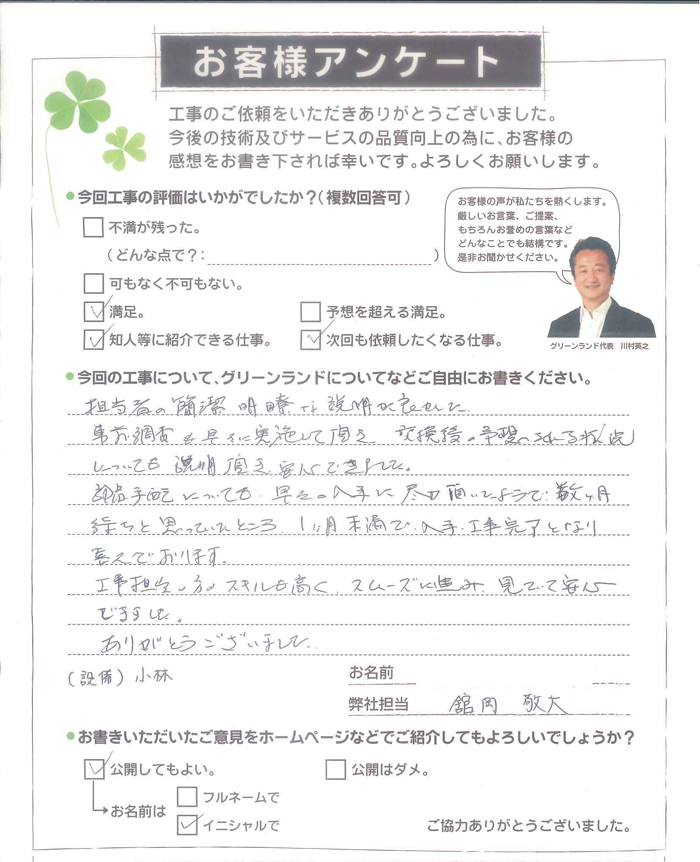 お客様アンケート
工事のご依頼をいただきありがとうございました。
今後の技術及びサービスの品質向上の為に、お客様の
感想をお書き下されば幸いです。よろしくお願いします。
今回工事の評価はいかがでしたか？（複数回答可）
不満が残った。
（どんな点で？：　）
可もなく不可もない。
満足。
予想を超える満足。
知人等に紹介できる仕事。
次回も依頼したくなる仕事。
お客様の声が私たちを熱くします。
厳しいお言葉、ご提案、
もちろんお誉めの言葉など
どんなことでも結構です。
是非お聞かせください。
グリーンランド代表　川村英之
今回の工事について、グリーンランドについてなどご自由にお書きください。
担当者の簡潔明瞭な説明が良かった
事前調査も早々に実施して頂き 交換後の予想される
についても説明頂き安心できました。
部品手配についても、早々の入手に尽力頂いたようで、数ヶ月
待ちと思っていたところ、1ヶ月未満で入手、工事完了となり
喜んでおります。
工事担当の方のスキルも高く、スムーズに進み、見ていて安心
できました。
ありがとうございました。
（設備）小林
お名前
弊社担当　舘岡 敬大
お書きいただいたご意見をホームページなどでご紹介してもよろしいでしょうか？
公開してもよい。
公開はダメ。
お名前は
フルネームで
イニシャルで
ご協力ありがとうございました。